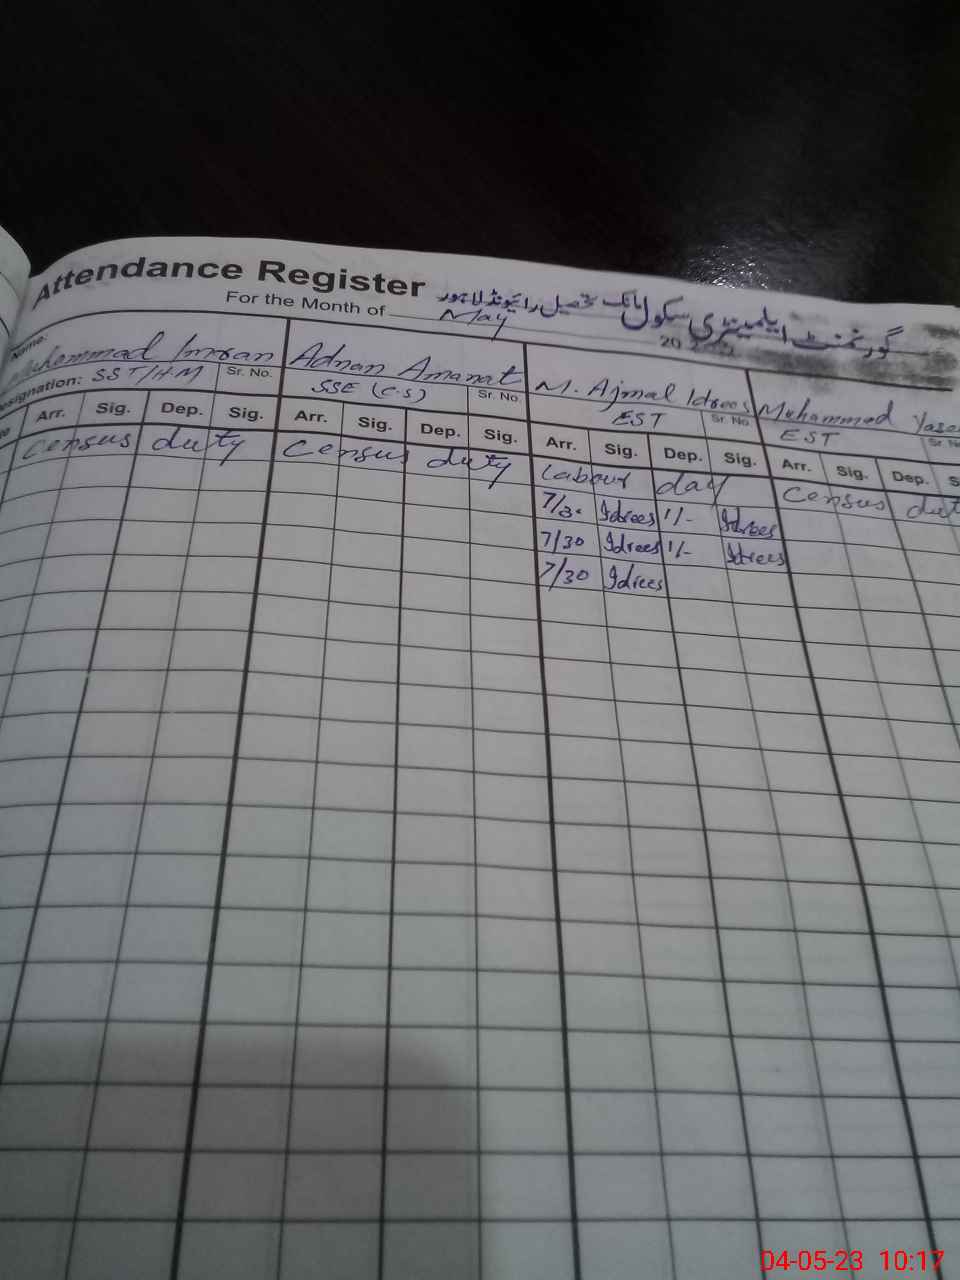 Attendance Register
گورنمنٹ ایلمینٹری سکول مانک تحصیل رائیونڈ لاہور
For the Month of May 20
Name: Muhammad Imran Adnan Amanat M. Ajmal Idrees Muhammad Yase
esignation: SST/H.M Sr. No. SSE (C.S) Sr. No. EST Sr. No. EST Sr. No
Arr. Sig. Dep. Sig. Arr. Sig. Dep. Sig. Arr. Sig. Dep. Sig. Arr. Sig. Dep. S
Census duty Census duty Labour day Census dut
7/30 Idrees 1/- Idrees
7/30 Idrees 1/- Idrees
7/30 Idrees
04-05-23 10:17